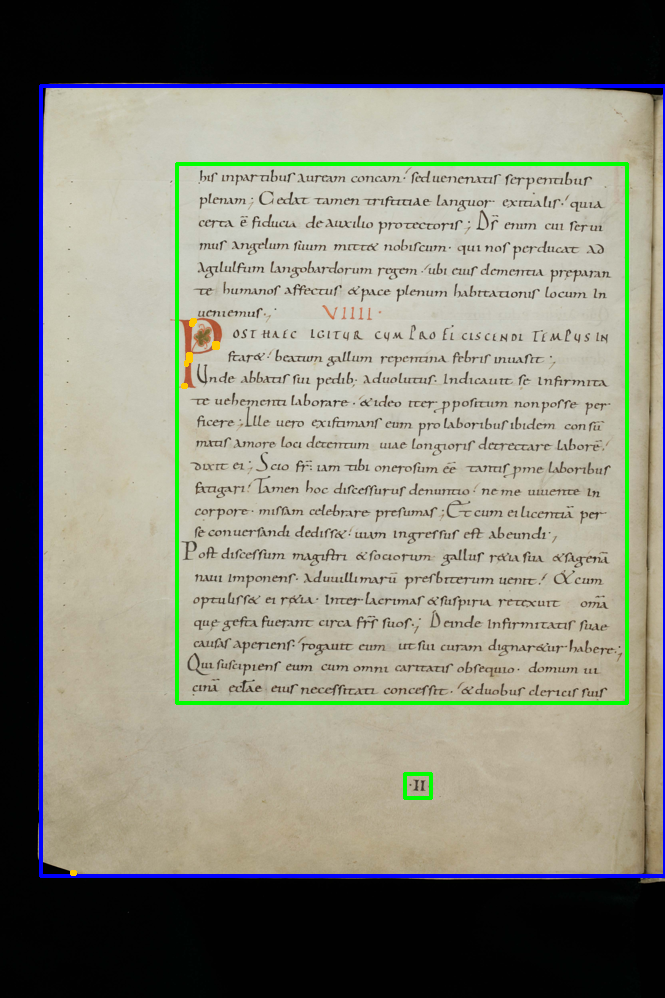 his inpartibus auream concam; sed uenenatis serpentibus
plenam; Cedat tamen tristitiae languor exitialis; quia
certa ē fiducia de auxilio protectoris; Ds̄ enim cui serui
mus angelum suum mitt& nobiscum · qui nos perducat ad
Agilulfum langobardorum regem; ubi eius clementia preparan
te humanos affectus &pace plenum habitationis locum in
ueniemus;
VIIII ·
POST HAEC IGITUR CUM PROFICISCENDI TEMPUS IN
star&; beatum gallum repentina febris inuasit;
Unde abbatis sui pedib; aduolutus. Indicauit se infirmita
te uehementi laborare · &ideo iter ppositum non posse per
ficere; Ille uero existimans eum pro laboribus ibidem consū
matis amore loci detentum uiae longioris detrectare laborē;
dixit ei; Scio fr̄. iam tibi onerosum eē tantis pme laboribus
fatigari; Tamen hoc discessurus denuntio; ne me uiuente in
corpore · missam celebrare presumas; Et cum ei licentiā per
se conuersandi dediss&; uiam ingressus est abeundi;
Post discessum magistri &sociorum gallus r&ia sua &sagenā
naui imponens · Aduuillimarū presbiterum uenit; & cum
optuliss& ei r&ia · Inter lacrimas &suspiria retexuit omā
que gesta fuerant circa frs̄ suos; Deinde infirmitatis suae
causas aperiens; rogauit eum ut sui curam dignar&ur habere;
Qui suscipiens eum cum omni caritatis obsequio · domum ui
cinā eclae eius necessitati concessit ; &duobus clericis suis
·II·